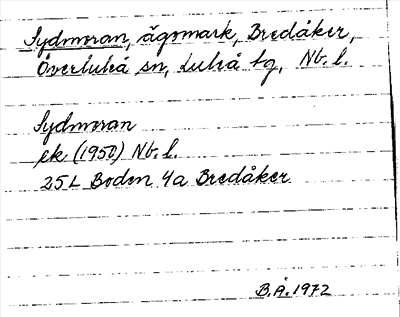 Sydmoran, ägomark, Bredåker,
Överluleå sn, Luleå tg, Nb. l.
Sydmoran
ek (1950) Nb. l.
25L Boden 4a Bredåker
B.Å. 1972